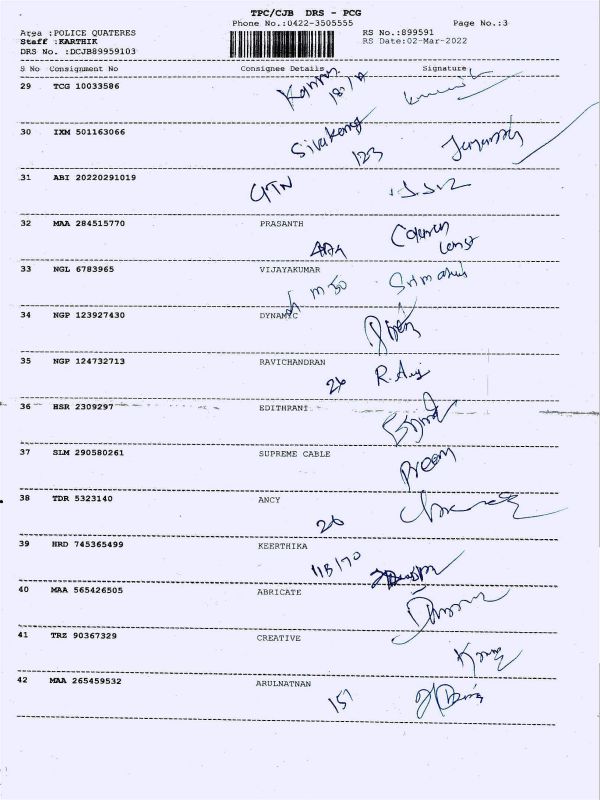 TPC/CJB DRS - PCG
Phone No.:0422-3505555 Page No.:3
Area :POLICE QUATERES RS No.:899591
Staff :KARTHIK RS Date:02-Mar-2022
DRS No. :DCJB89959103
S No Consignment No Consignee Details Signature
29 TCG 10033586
30 IXM 501163066 Sivakami
123
31 ABI 20220291019
GTN
32 MAA 284515770 PRASANTH
33 NGL 6783965 VIJAYAKUMAR
34 NGP 123927430 DYNAMIC
35 NGP 124732713 RAVICHANDRAN
26
36 HSR 2309297 EDITHRANI
37 SLM 290580261 SUPREME CABLE
38 TDR 5323140 ANCY
26
39 HRD 745365499 KEERTHIKA
118/170
40 MAA 565426505 ABRICATE
41 TRZ 90367329 CREATIVE
42 MAA 265459532 ARULNATNAN
151